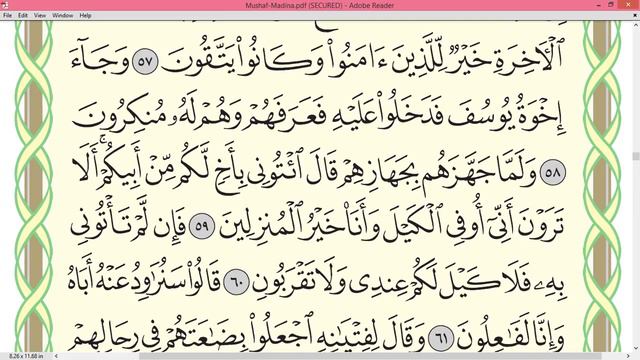 Mushaf-Madina.pdf (SECURED) - Adobe Reader
File Edit View Window Help
ٱلۡأٓخِرَةِ خَيۡرٞ لِّلَّذِينَ ءَامَنُواْ وَكَانُواْ يَتَّقُونَ ٥٧ وَجَآءَ
إِخۡوَةُ يُوسُفَ فَدَخَلُواْ عَلَيۡهِ فَعَرَفَهُمۡ وَهُمۡ لَهُۥ مُنكِرُونَ
٥٨ وَلَمَّا جَهَّزَهُم بِجَهَازِهِمۡ قَالَ ٱئۡتُونِي بِأَخٖ لَّكُم مِّنۡ أَبِيكُمۡۚ أَلَا
تَرَوۡنَ أَنِّيٓ أُوفِي ٱلۡكَيۡلَ وَأَنَا۠ خَيۡرُ ٱلۡمُنزِلِينَ ٥٩ فَإِن لَّمۡ تَأۡتُونِي
بِهِۦ فَلَا كَيۡلَ لَكُمۡ عِندِي وَلَا تَقۡرَبُونِ ٦٠ قَالُواْ سَنُرَٰوِدُ عَنۡهُ أَبَاهُ
وَإِنَّا لَفَٰعِلُونَ ٦١ وَقَالَ لِفِتۡيَٰنِهِ ٱجۡعَلُواْ بِضَٰعَتَهُمۡ فِي رِحَالِهِمۡ
8.26 x 11.68 in